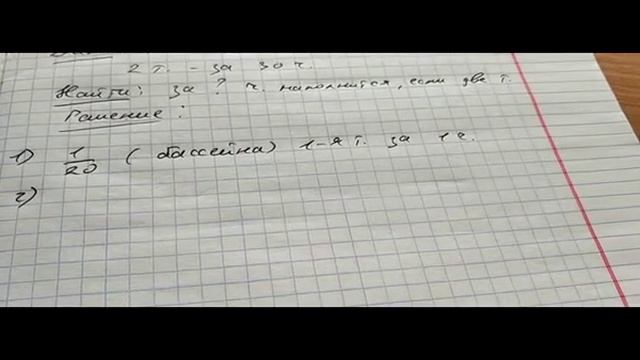 2 т. - за 30 ч.
Найти: за ? ч. наполнится, если две т.
Решение:
1) 1/20 (бассейна) 1-я т. за 1 ч.
2)